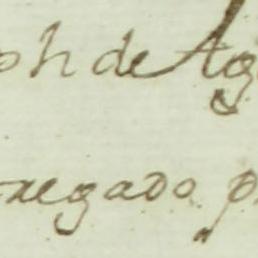 ph de Ag
regado p